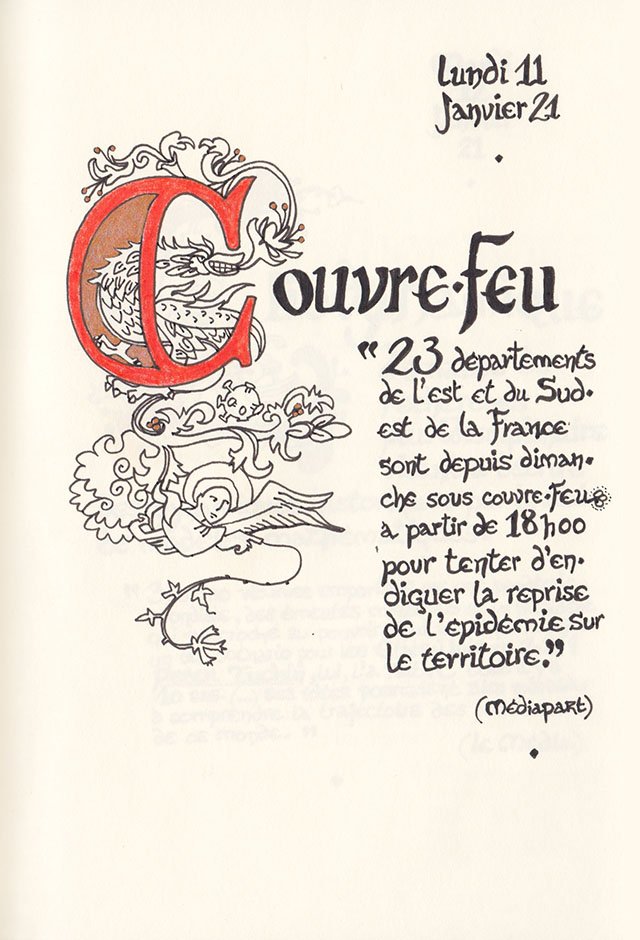 Lundi 11
Janvier 21
Couvre·feu
“23 départements
de l'est et du Sud·
est de la France
sont depuis diman·
che sous couvre·feu
a partir de 18h00
pour tenter d'en·
diguer la reprise
de l'épidémie sur
le territoire.”
(Médiapart)